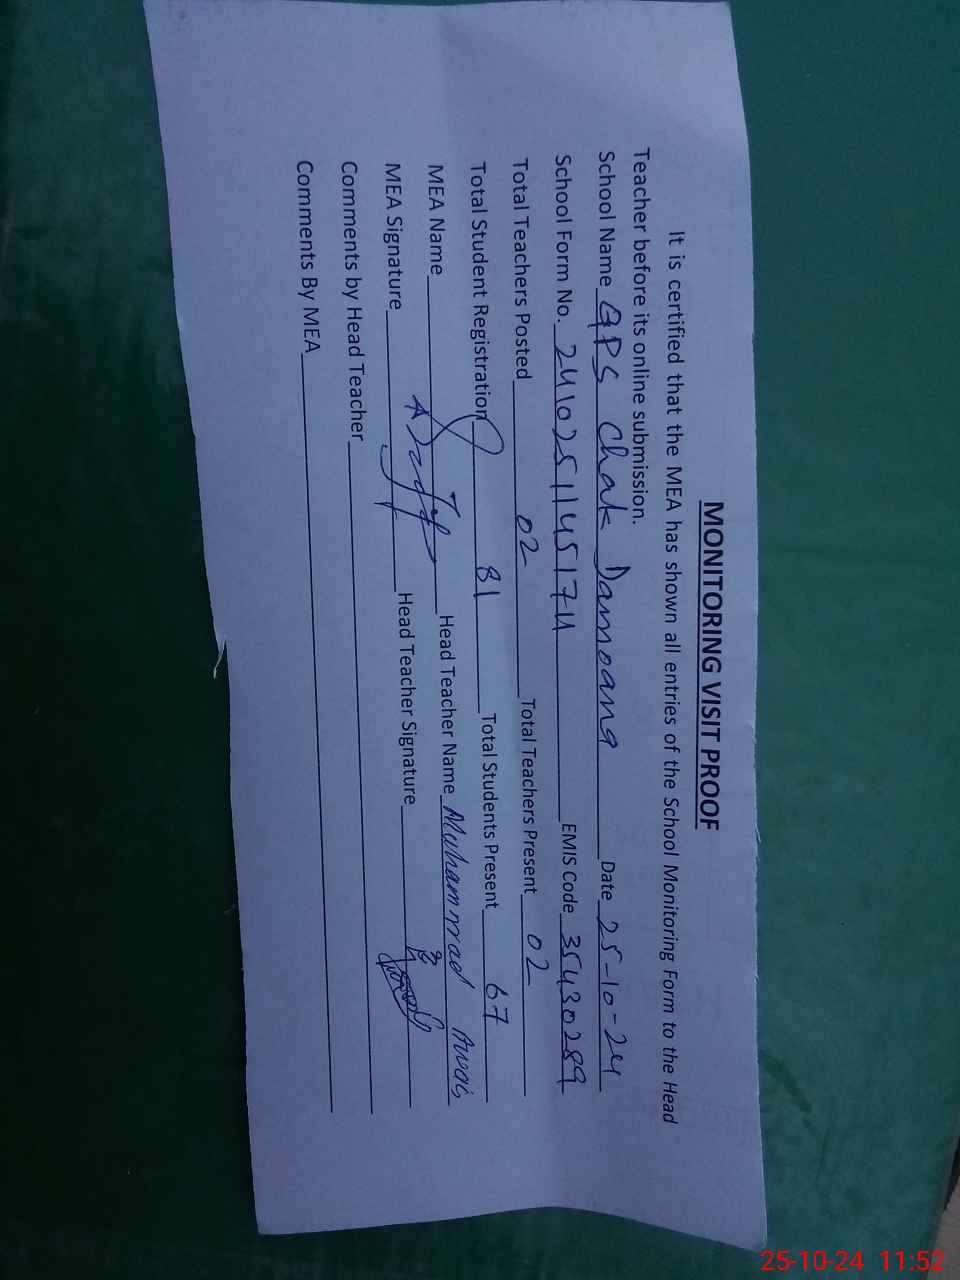 MONITORING VISIT PROOF
It is certified that the MEA has shown all entries of the School Monitoring Form to the Head
Teacher before its online submission.
School Name GPS Chak Damoana Date 25-10-24
School Form No. 2410251145174 EMIS Code 35430289
Total Teachers Posted 02 Total Teachers Present 02
Total Student Registration 81 Total Students Present 67
MEA Name Head Teacher Name Muhammad Awais
MEA Signature Head Teacher Signature
Comments by Head Teacher
Comments By MEA
25-10-24 11:52